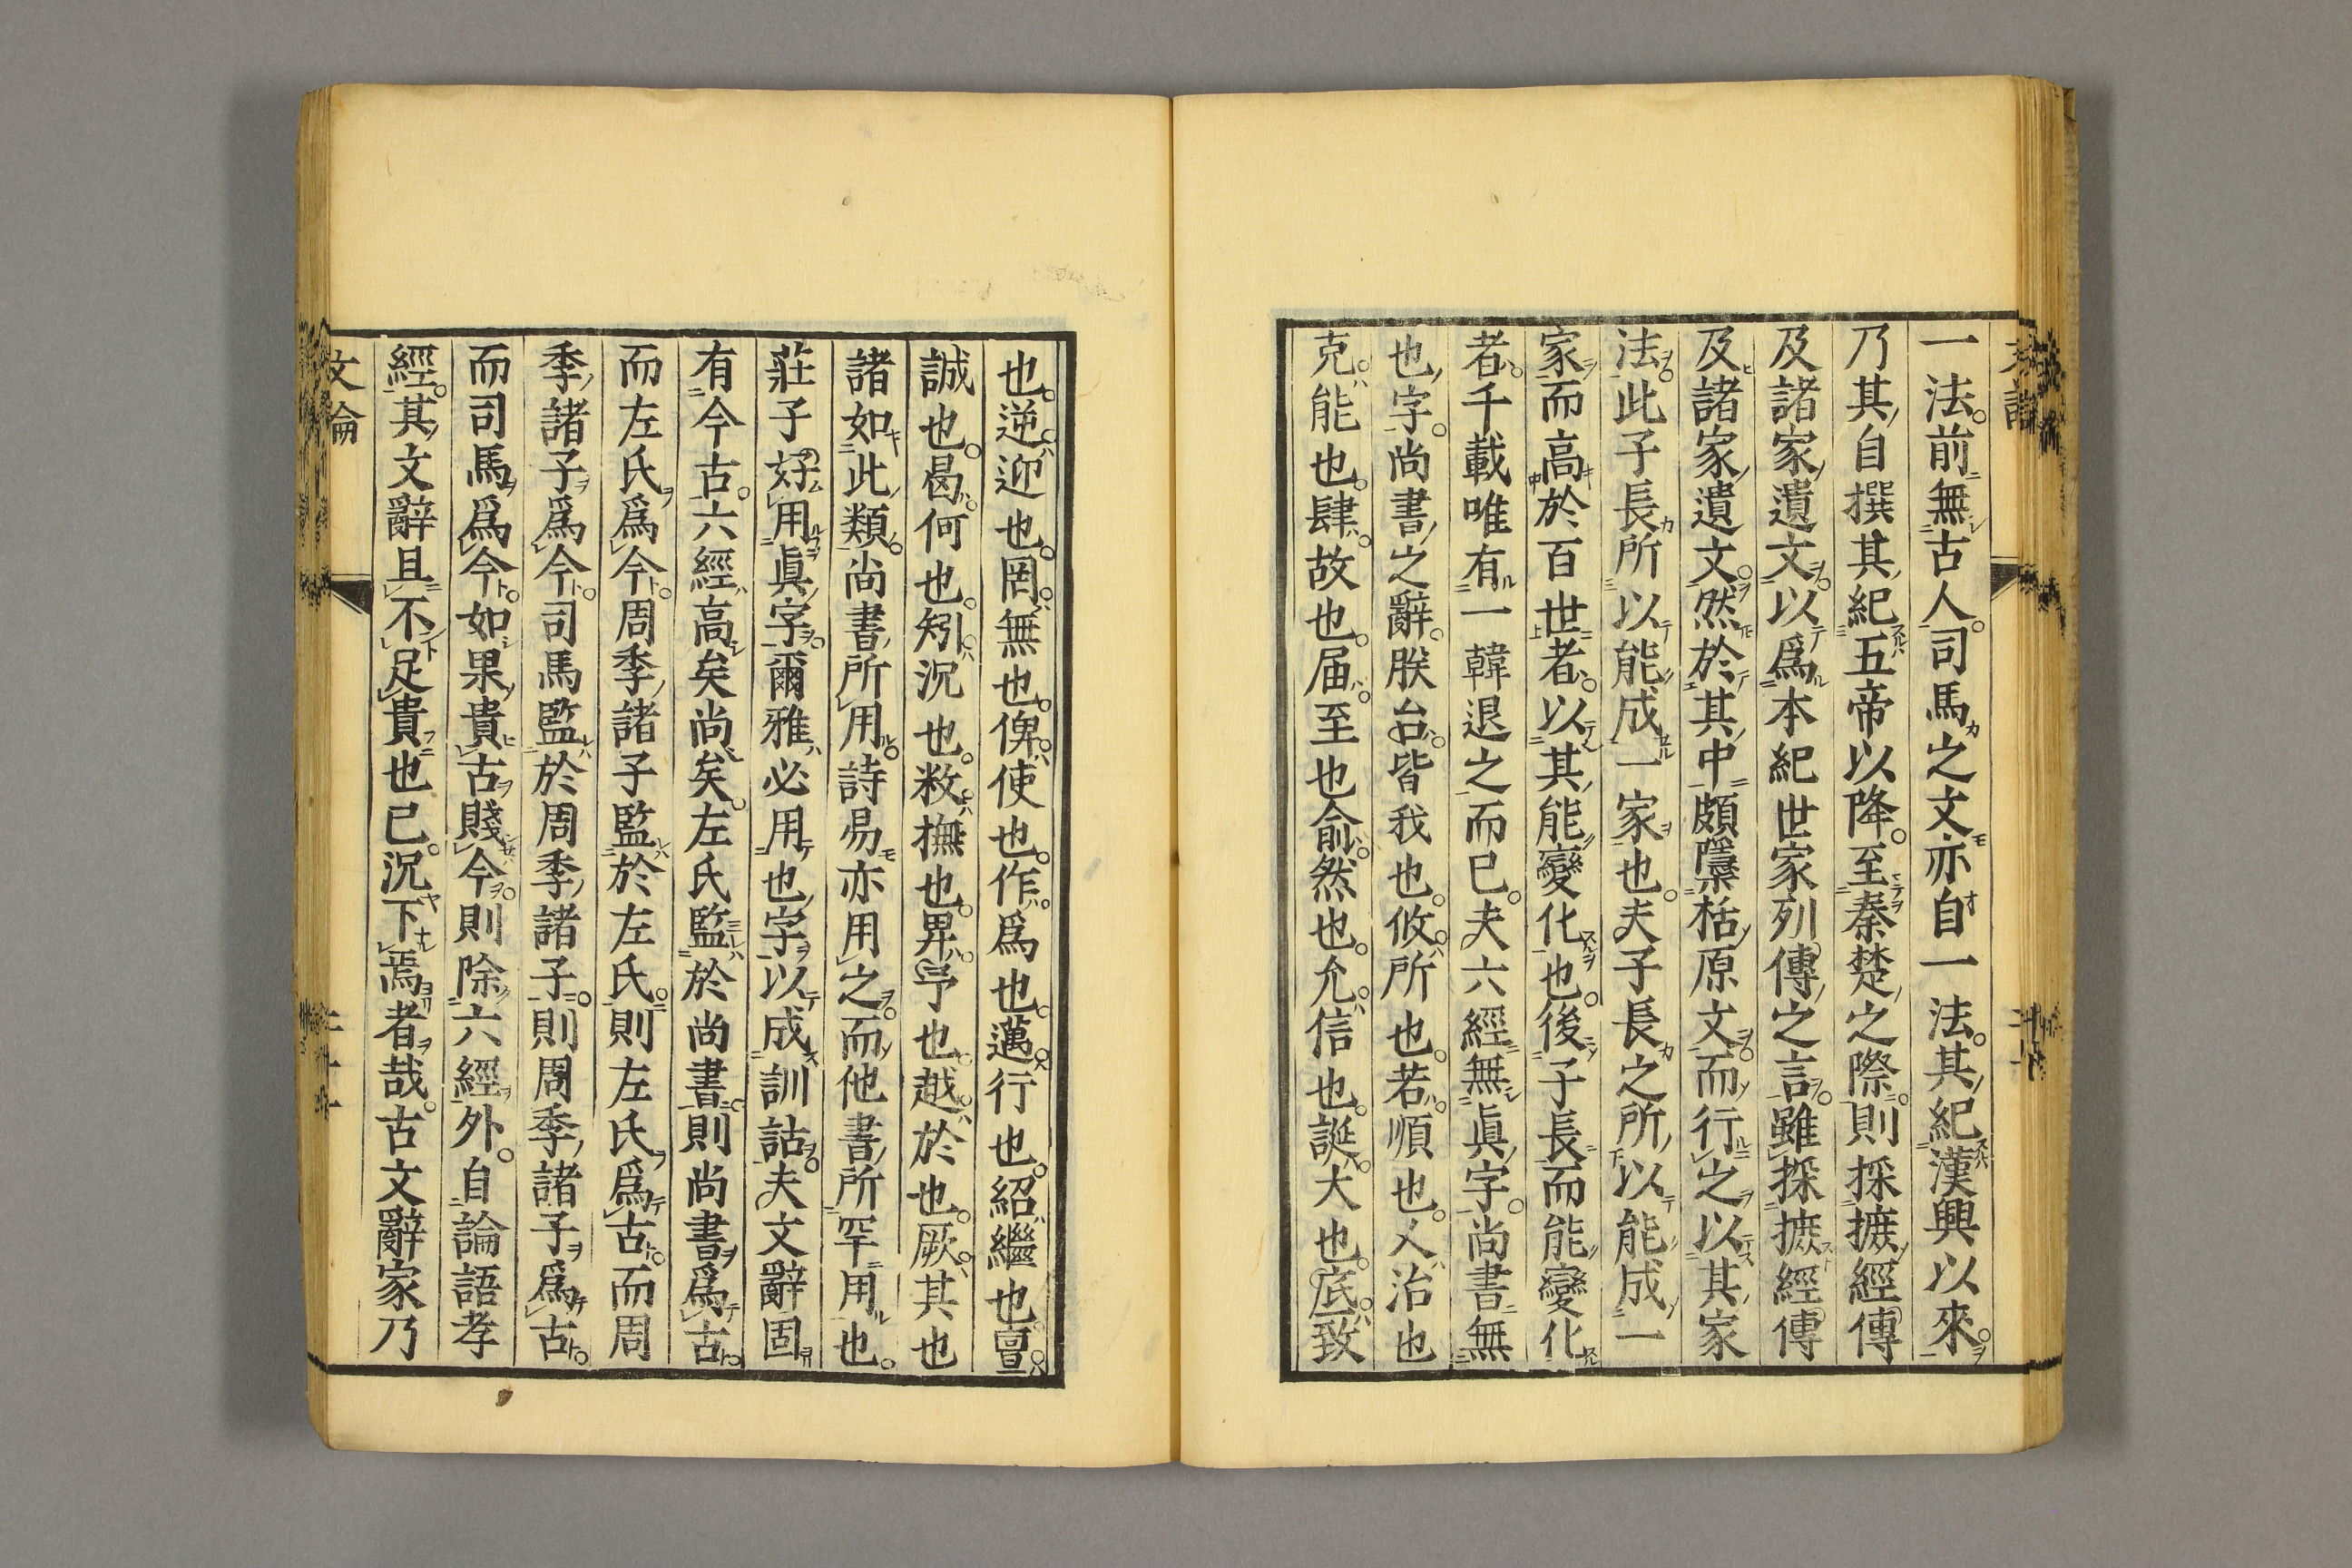 一法。前無古人。司馬之文亦自一法。其紀漢興以來。
乃其自撰其紀五帝以降。至秦楚之際。則採摭經傳
及諸家遺文。以爲本紀世家列傳之言。雖採摭經傳
及諸家遺文。然於其中頗檃栝原文。而行之以其家
法。此子長所以能成一家也。夫子長之所以能成一
家而高於百世者。以其能變化也。後子長而能變化
者。千載唯有一韓退之而已。夫六經無眞字。尚書無
也字。尚書之辭。朕台。皆我也。攸。所也。若。順也。乂治也
克。能也。肆。故也。届。至也俞。然也。允。信也。誕。大也。底。致
也。逆。迎也。罔。無也。俾。使也。作。爲也。邁。行也。紹繼也亶。
誠也。曷。何也。矧。況也。敉。撫也。畀。予也越。於也。厥。其也
諸如此類。尚書所用。詩易亦用之。而他書所罕用也。
莊子好用眞字。爾雅必用也字以成訓詁。夫文辭固
有今古。六經高矣尚矣。左氏監於尚書。則尚書爲古。
而左氏爲今。周季諸子監於左氏。則左氏爲古。而周
季諸子爲今。司馬監於周季諸子。則周季諸子爲古。
而司馬爲今。如果貴古賤今。則除六經外。自論語孝
經。其文辭且不足貴也已。況下焉者哉。古文辭家乃
文論
二十一